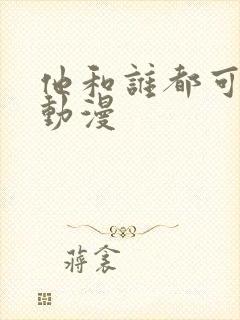 他和誰都可
動漫
蔣衾